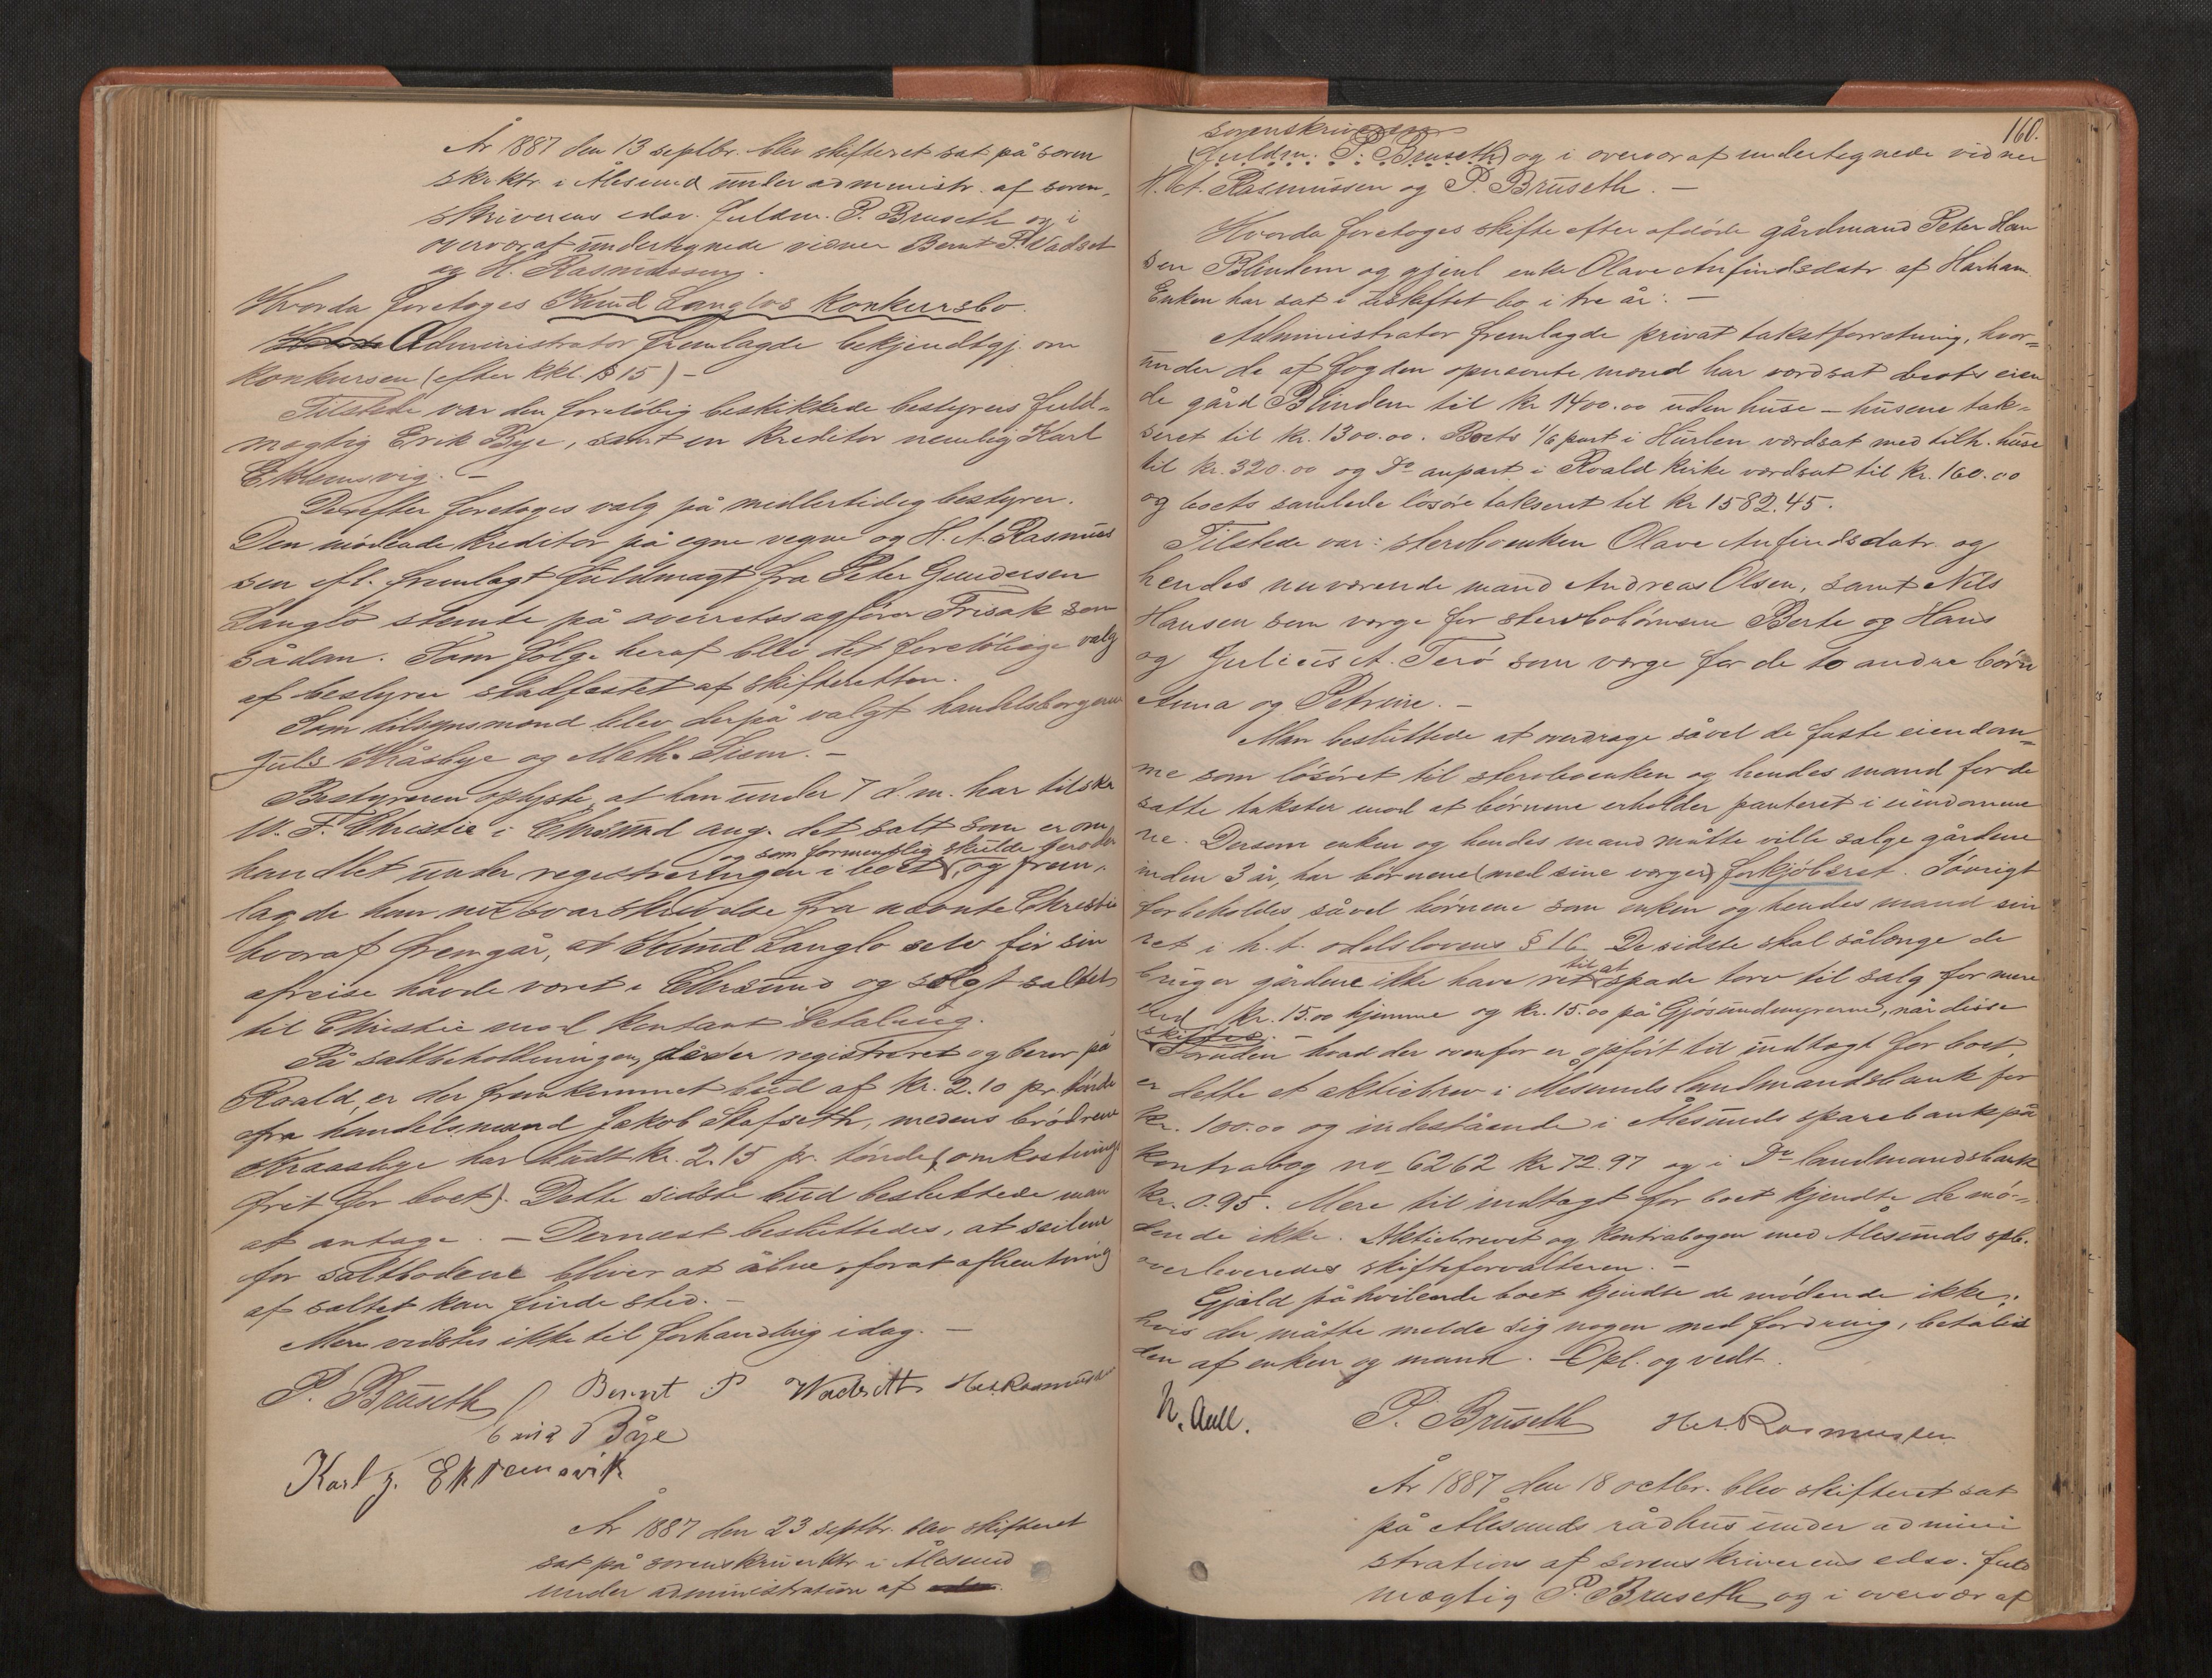 År 1887 den 13 septbr. blev skifteret sat på soren
skr.ktr. i Ålesund under administr. af soren-
skriverens edsv. fuldm. P. Bruseth og i
overvær af undertegnede vidner Bernt P. Vadset
og H. Rasmussen.
Hvorda foretoges Knud Langlos konkursbo.
Administrator fremlagde bekjendtgj. om
konkursen (efter kkl. § 15) –
Tilstede var den foreløbig beskikkede bestyrers fuld-
mægtig Erik Bye, samt en kreditor nemlig Karl
Ekremsvig. –
Derefter foretoges valg på midlertidig bestyrer.
Den mødende kreditor på egne vegne og H. A. Rasmus
sen ifl. fremlagt fuldmagt fra Peter Gundersen
Langlo stemte på overretssagfører Frisak som
sådan. Som følge heraf blev det foreløbige valg
af bestyrer stadfæstet af skifteretten.
Som tilsynsmænd blev derpå valgt handelsborgerne
Juls Kråsbye og Math. Siem. –
Bestyreren oplyste, at han under 7 d.m. har tilskr
W. F. Christie i Chrsund ang. det salt som er om
og som formentlig skulde bero der
handlet under registreringen i boet, og frem-
lagde han nu svarskrivelse fra nævnte Christie
hvoraf fremgår, at Knud Langlo selv før sin
afreise havde været i Chrsund og solgt saltet
til Christie mod kontant betaling.
På saltbeholdningen, der er registreret og beror på
Roald, er der fremkommet bud af kr. 2.10 pr. tønde
fra handelsmand Jakob Stafseth, medens brødrene
Kraasbye har budt kr. 2.15 pr. tønde (omkostnings
frit for boet). Dette sidste bud besluttede man
at antage. – Dernæst besluttedes, at seilene
for saltbodene bliver at åbne, forat afhentning
af saltet kan finde sted. –
Mere vidstes ikke til forhandling idag. –
P. Bruseth Bernt P Wadsett H.A. Rasmussen
Erik Bye
Karl J. Ekremsvik
År 1887 den 23 septbr. blev skifteret
sat på sorenskriverktr. i Ålesund
under administration af
160.
sorenskriveren
(fuldm. P. Bruseth) og i overvær af undertegnede vidner
H. A. Rasmussen og P. Bruseth. –
Hvorda foretoges skifte efter afdøde gårdmand Peter Han
sen Blindem og gjenl. enke Olave Anfindsdatr af Harham.
Enken har sat i uskiftet bo i tre år. –
Administrator fremlagde privat takstforretning, hvor-
under de af fogden opnævnte mænd har værdsat boets eien
de gård Blindem til kr 1400.00 uden huse – husene tak-
seret til kr. 1300.00. Boets 1/6 part i Hurlen værdsat med tilh. huse
til kr. 320.00 og Do anpart i Roald kirke værdsat til kr. 160.00
og boets samlede løsøre takseret til kr 1582.45.
Tilstede var: sterboenken Olave Anfindsdatr og
hendes nuværende mand Andreas Olsen, samt Nils
Hansen som værge for sterbobørnene Berte og Hans
og Julius A. Terø som værge for de to andre børn
Anna og Petrine. –
Man besluttede at overdrage såvel de faste eiendom-
me som løsøret til sterboenken og hendes mand for de
satte takster mod at børnene erholder panteret i eiendomme
ne. Dersom enken og hendes mand måtte ville sælge gårdene
inden 3 år, har børnene (med sine værger) forkjøbsret. Iøvrigt
forbeholdes såvel børnene som enken og hendes mand sin
ret i h. t. odelslovens § 16. De sidste skal sålænge de
bruger gårdene ikke have ret til at spade torv til salg for mere
end kr. 15.00 hjemme og kr. 15.00 på Gjøsundmyrerne, når disse
skiftes.
Foruden hvad der ovenfor er opført til indtægt for boet,
er dette et aktiebrev i Ålesunds landmandsbank for
kr. 100.00 og indestående i Ålesunds sparebank på
kontrabog no 6262 kr 72.97 og i Do landmandsbank
kr. 0.95. Mere til indtægt for boet kjendte de mø-
dende ikke. Aktiebrevet og kontrabogen med Ålesunds spb.
overleveredes skifteforvalteren. –
Gjæld påhvilende boet kjendte de mødende ikke;
hvis der måtte melde sig nogen med fordring, betales
den af enken og mand. – Opl. og vedt.
N. Aall. P. Bruseth H.A. Rasmussen
År 1887 den 18 octbr. blev skifteret sat
på Ålesunds rådhus under admini
stration af sorenskriverens edsv. fuld
mægtig P. Bruseth og i overvær af